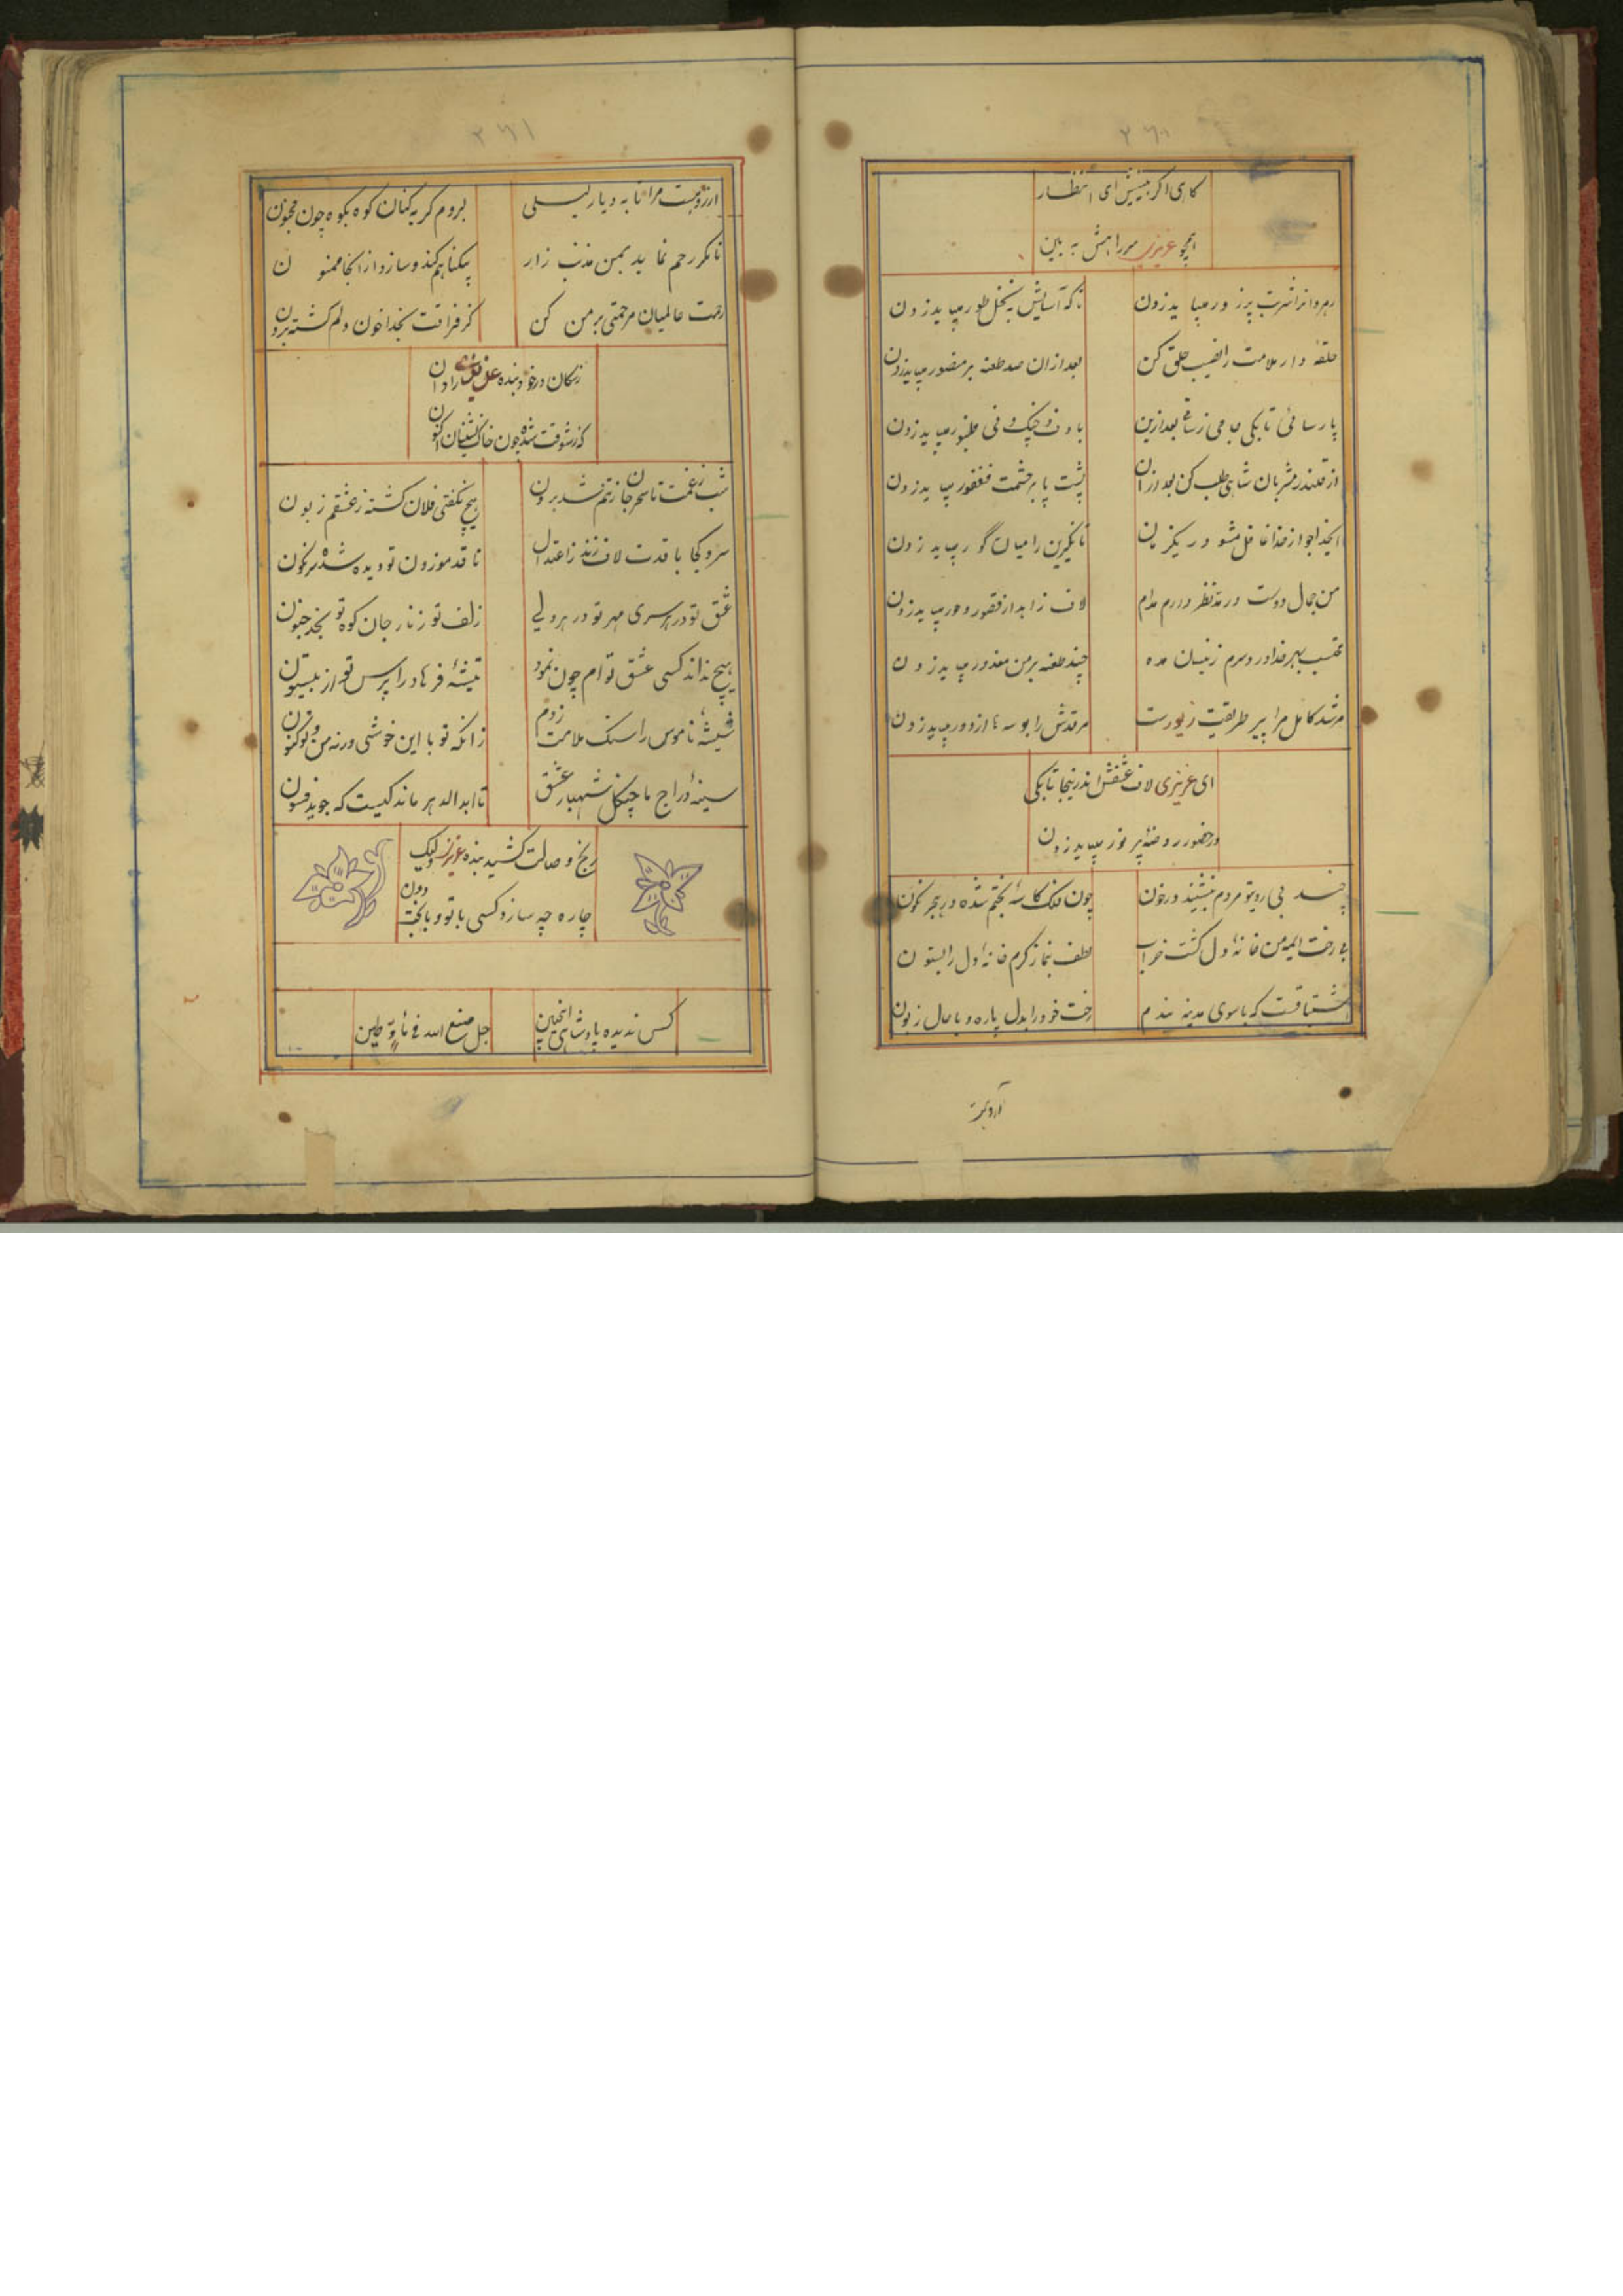 ۲۶۰
کاری اگر بینیش ای انتظار
همچو عزیزی سر راهش به بین
رهروانرا شربت پرز ور میباید زدن
تا که آسایش به نخل طور میباید زدن
حلقه دار ملامت را نصیب حلق کن
بعد ازان صد طعنه بر منصور میباید زدن
پارسائی تا بکی جامی ز ساقی بعد ازین
با دف و چنک و نی طنبور میباید زدن
از قلندر مشربان شاهی طلب کن بعد ازان
پشت پا بر حشمت فغفور میباید زدن
ایخداجو از خدا غافل مشو در یکزمان
تا نکیرین را میان گور میباید زدن
من جمال دوست در مدنظر دارم مدام
لاف زاهد از قصور و حور میباید زدن
محتسب بهر خدا دردسرم زینسان مده
چند طعنه بر من معذور میباید زدن
مرشد کامل مرا پیر طریقت زیورست
مرقدش را بوسه نا از دور میباید زدن
ای عزیزی لاف عشقش اندرینجا تا بکی
در حضور روضه پر نور میباید زدن
چند بی رویتو مردم بنشیند در خون
چون فلک کاسه بختم شده در هجر نکون
بی رخت ایمه من خانه دل گشت خراب
لطف بنما ز کرم خانه دل را بستون
اشتیاقست که با سوی مدینه بندم
رخت خود را بدل پاره و با حال زبون
آرزویست
۲۶۱
آرزویست مرا تا به دیار لیلی
بروم گریه کنان کوه بکوه چون مجنون
تا مکر رحم نماید بمن مذنب زار
پیکناهم کند و سازد از انجا ممنون
رحمت عالمیان مرحمتی بر من کن
کز فراقت بخدا خون دلم گشته برون
زسکان در خود بنده عزیزی را دان
که ز شوقت شده چون خاک نشینان اکنون
شب ز غمت تا سحر جان ز تنم شد برون
هیچ نگفتی فلان گشته ز عشقم زبون
سرو کجا با قدت لاف زند ز اعتدال
تا قد موزون تو دیده شده سرنگون
عشق تو در هر سری مهر تو در هر دلی
زلف تو زنار جان کوه تو نجد جنون
هیچ نداند کسی عشق توام چون نمود
تیشه فرهاد را پرس تو از بیستون
شیشه ناموس را سنک ملامت زدم
زانکه تو با این خوشی ورنه من و تو کنون
سینه دراج ما چنکل شهباز عشق
تا ابدالدهر ماند کیست که جوید فسون
رنج وصالت کشید بنده عزیزی ولیک
چاره چه سازد کسی با تو و با بخت دون
کس ندیده پادشاهی اینچنین
جل صنع الله فی ماء و طین